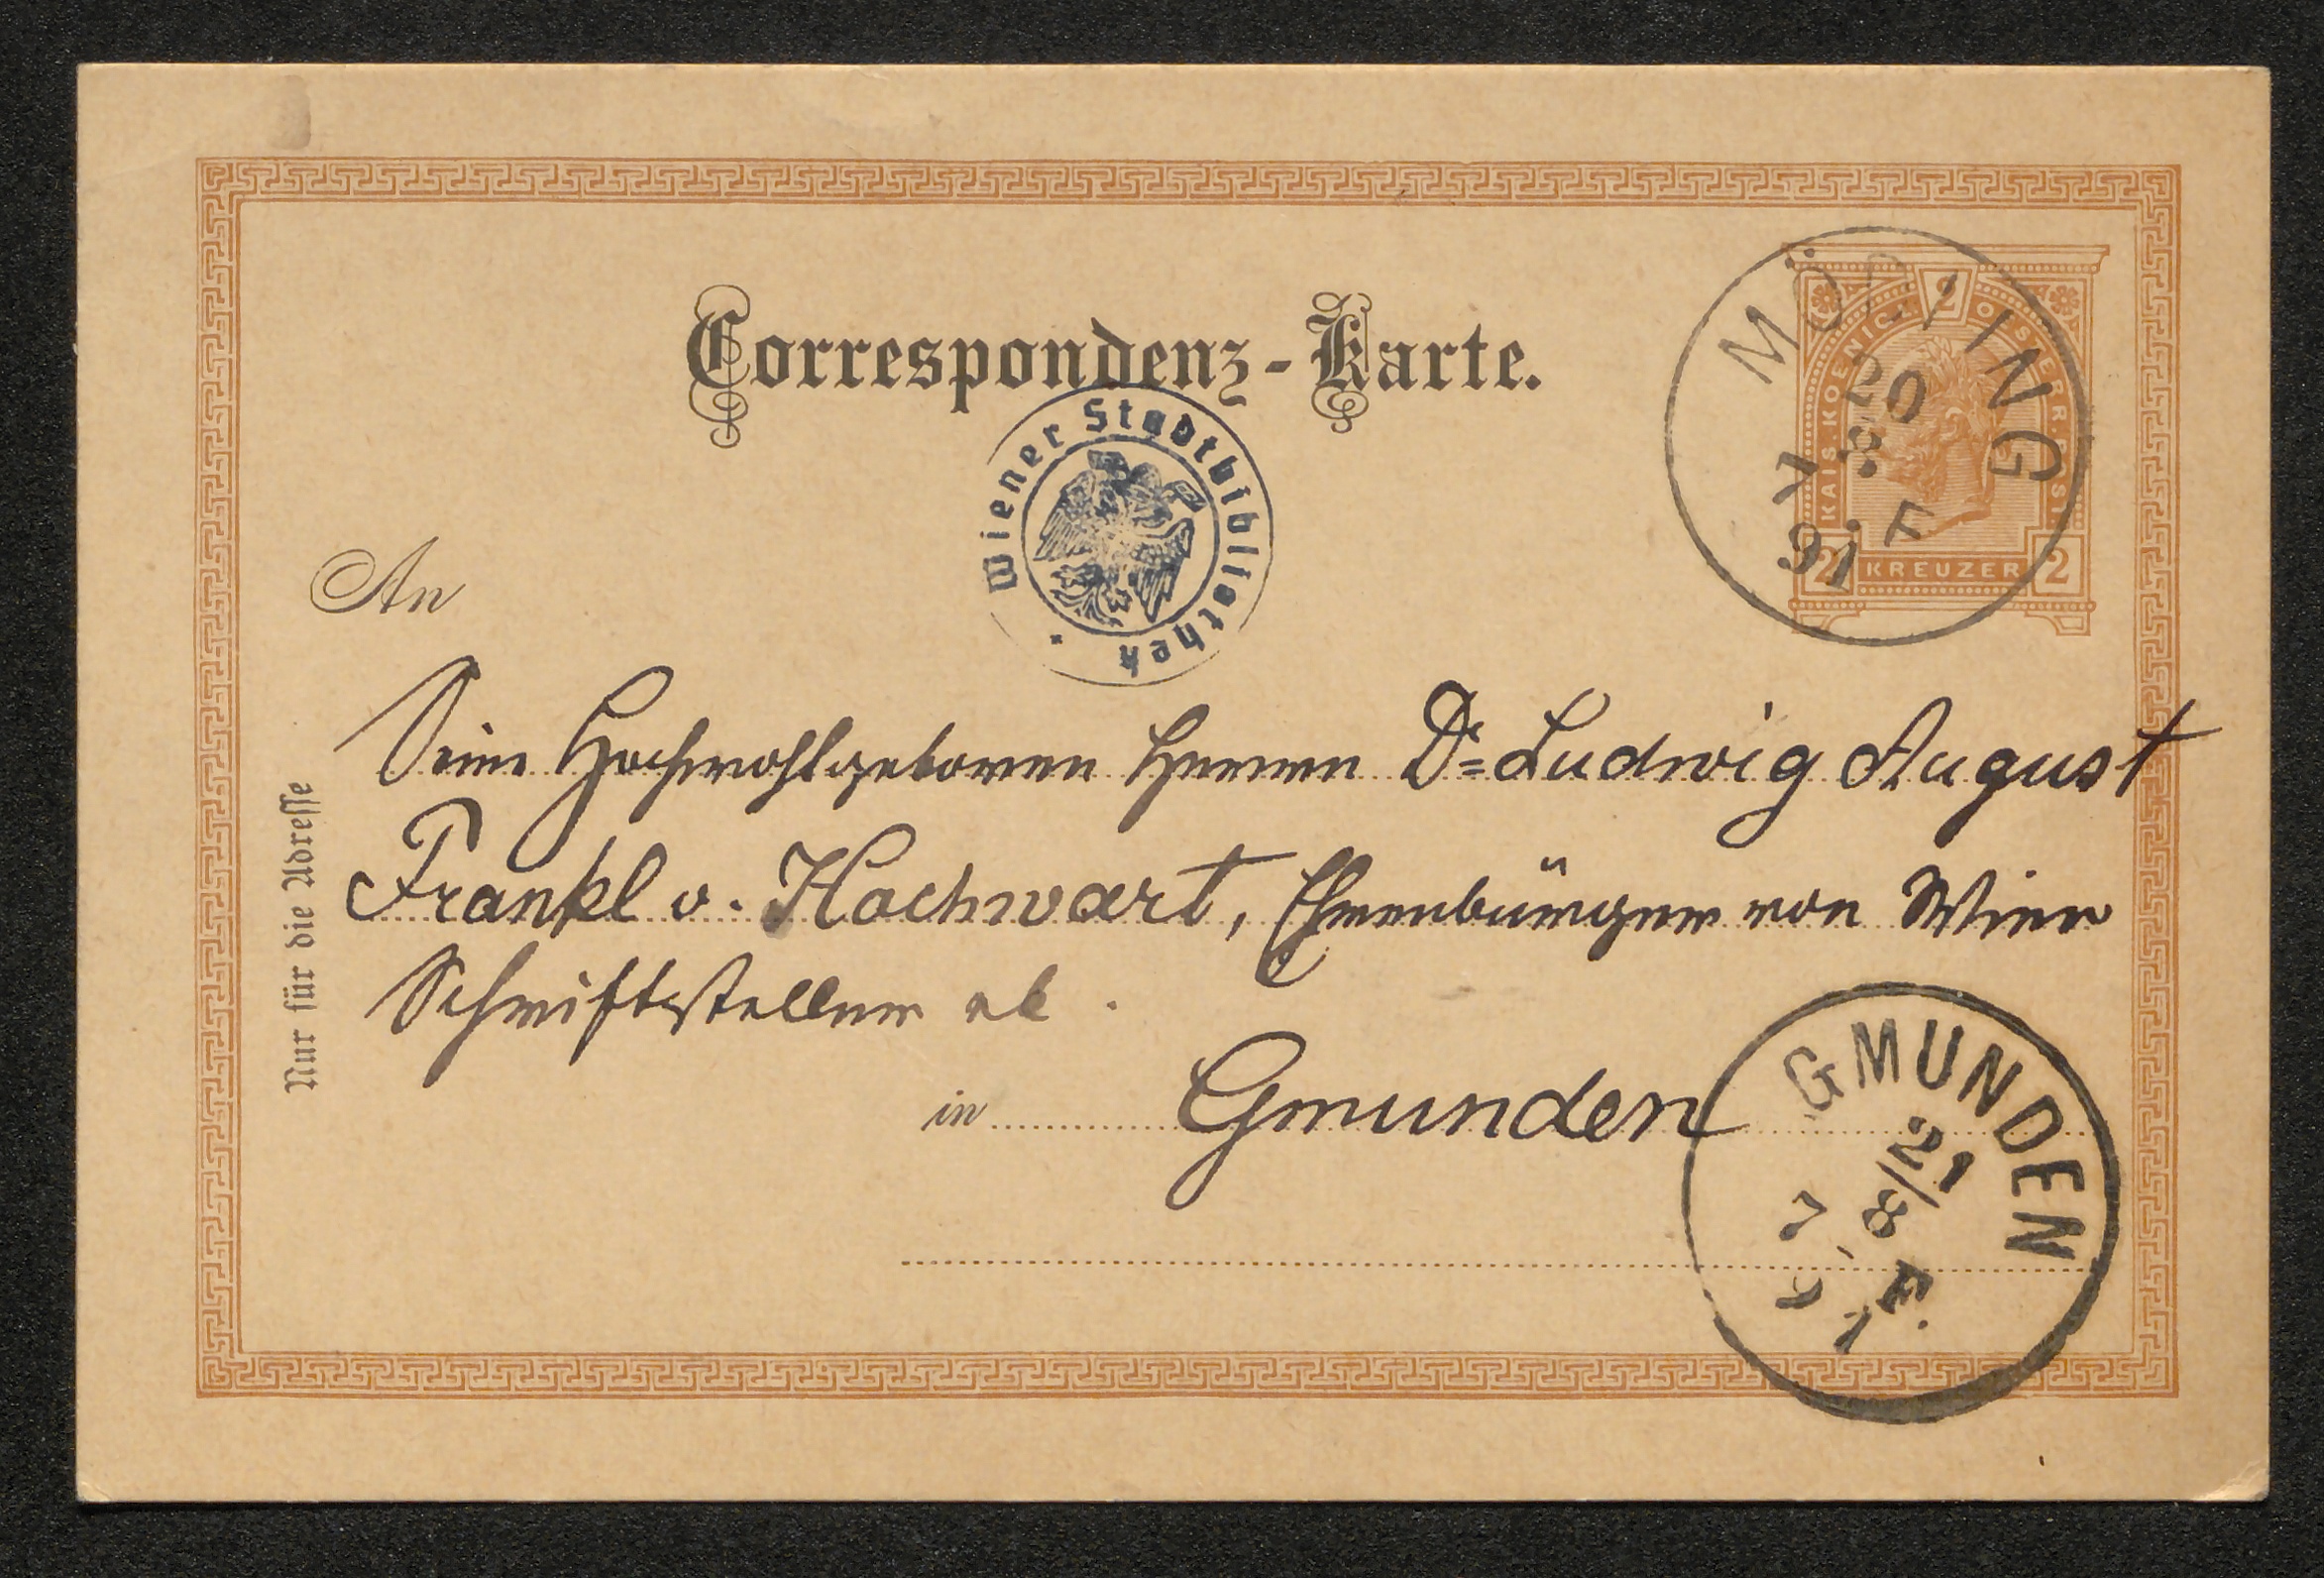 Correspondenz-Karte.
MÖDLING
20
8
91
F
KAIS. KOENIGL. OESTERR. POST
2
2 KREUZER 2
Wiener Stadtbibliothek
An
Seine Hochwohlgeboren Herrn Dr Ludwig August
Frankl v. Hochwart, Ehrenbürger von Wien
Schriftsteller
in Gmunden
Nur für die Adresse
GMUNDEN
21/8
F.